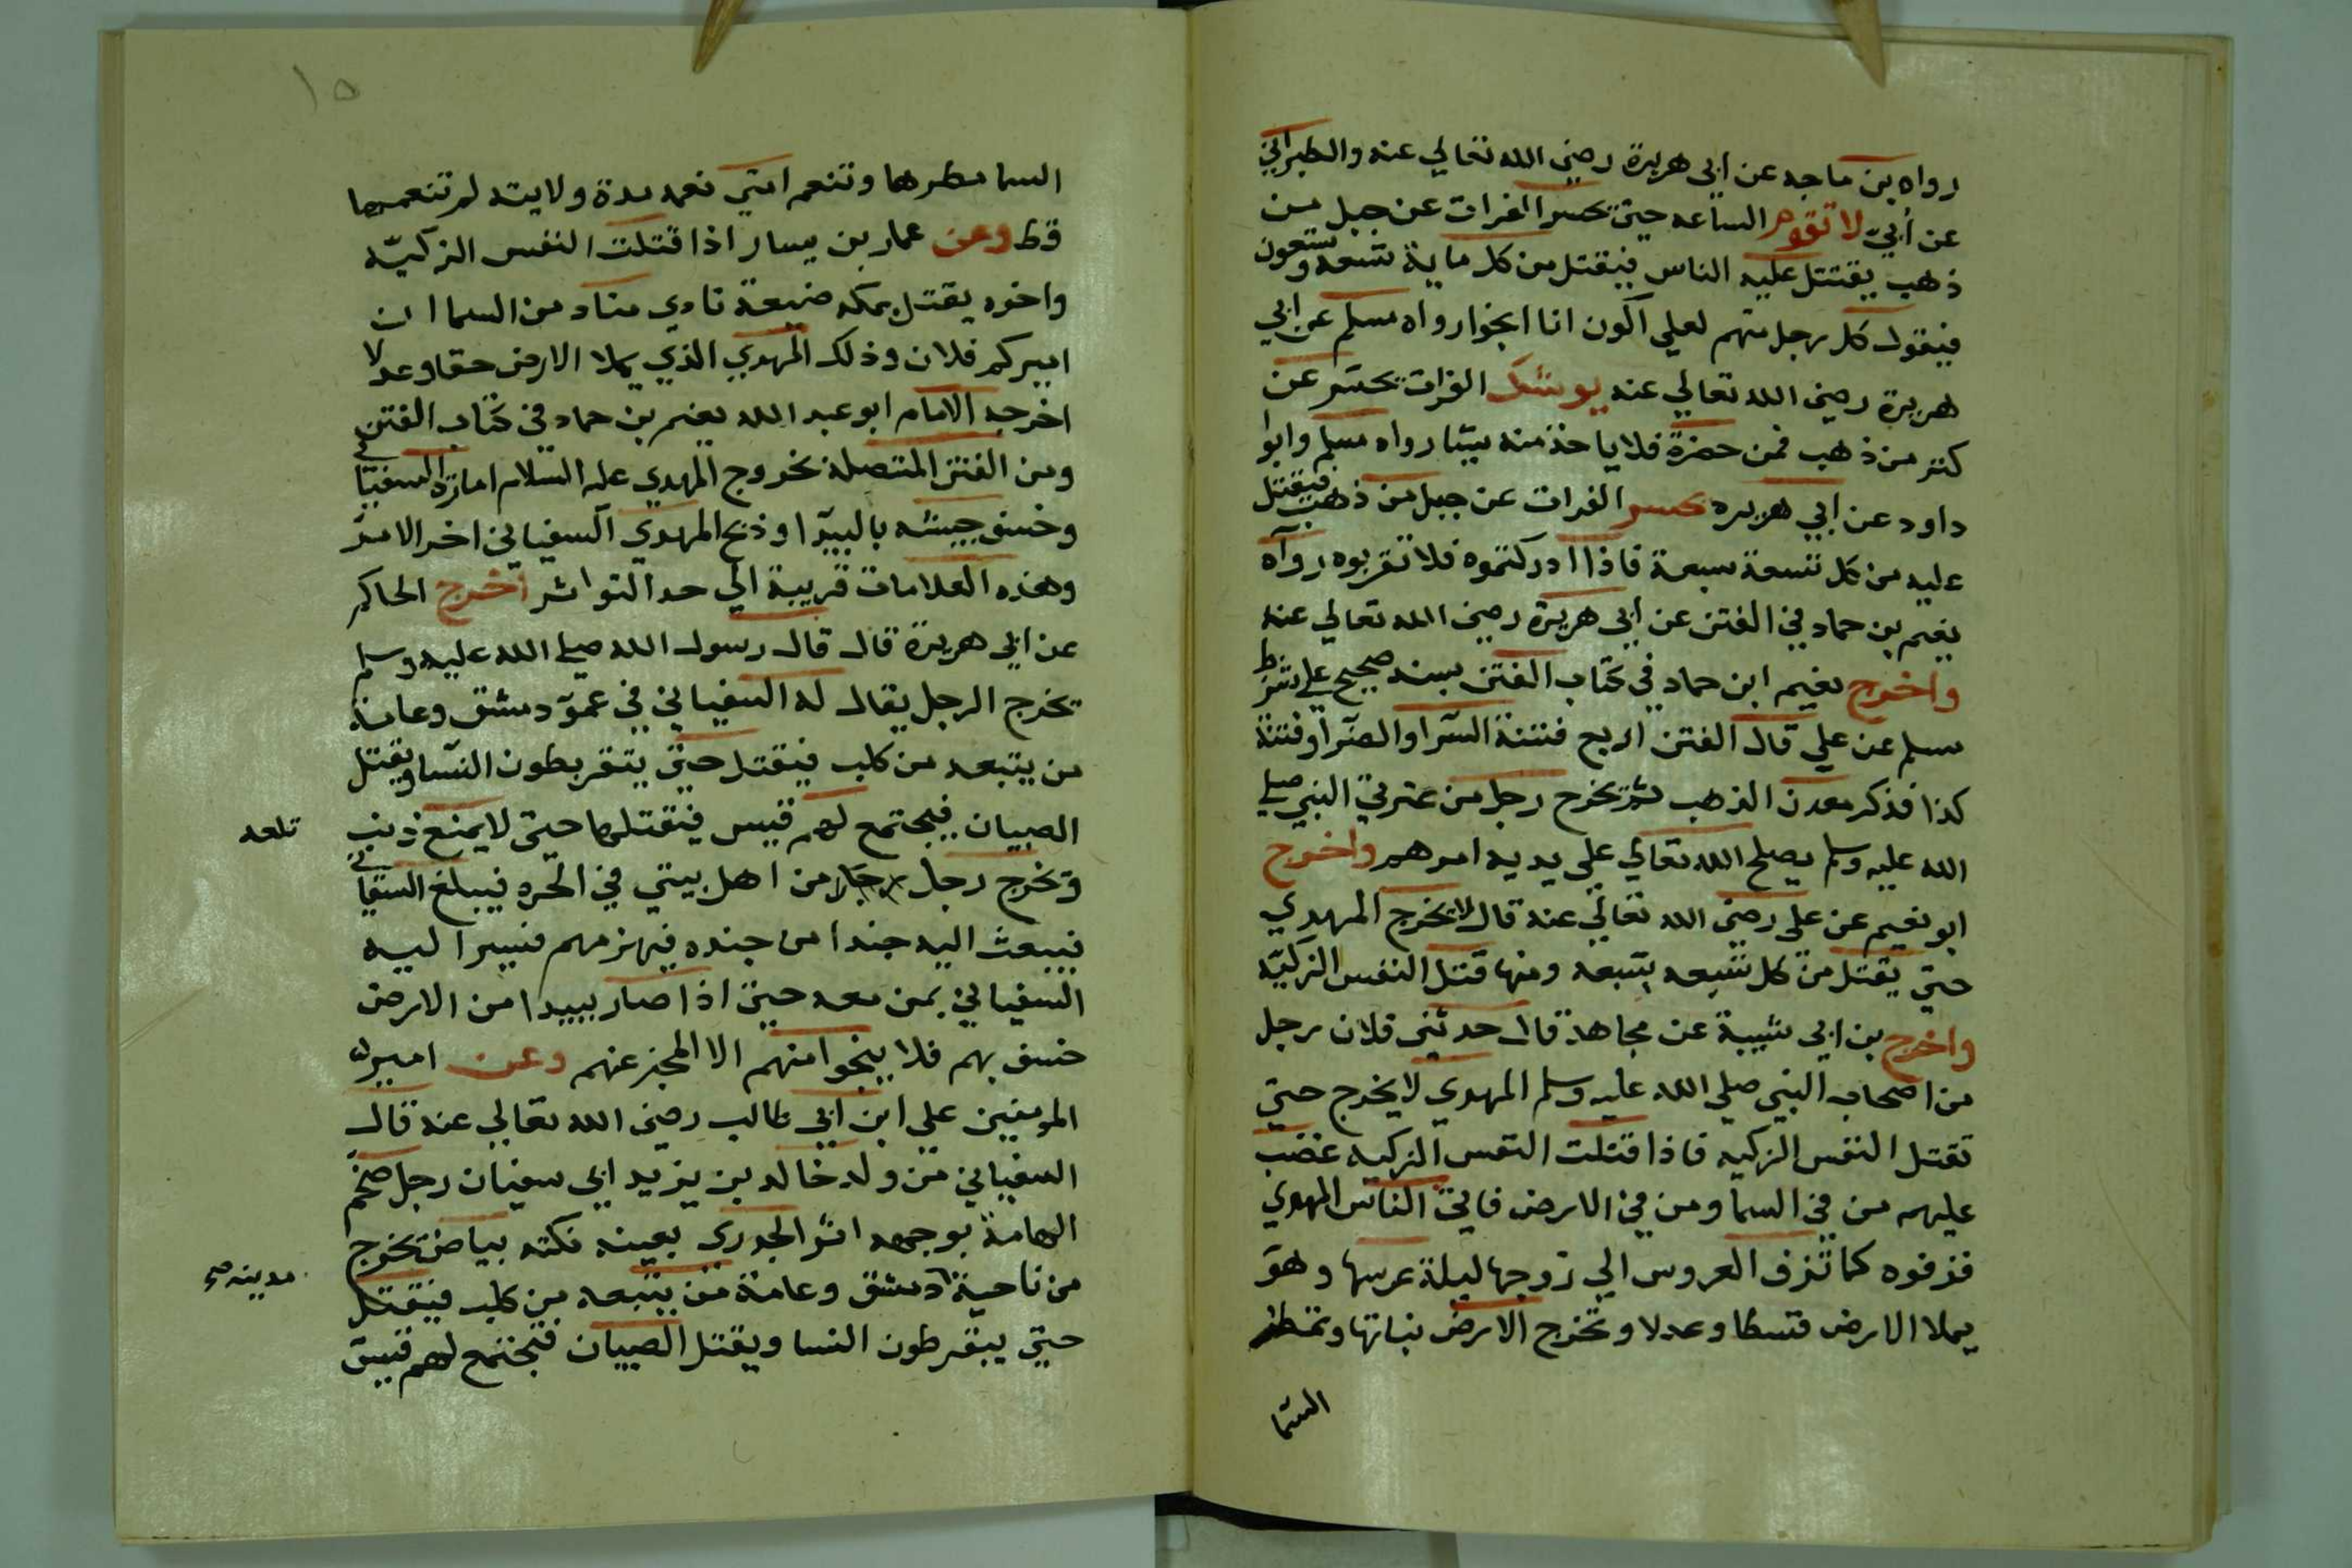 رواه بن ماجه عن ابى هريرة رضي الله تعالي عنه والطبراني
عن أبيّ لا تقوم الساعه حتي تحسر الفرات عن جبل من
ذهب يقتتل عليه الناس فيقتل من كل ماية تسعة وتسعون
فيقول كل رجل منهم لعلي اكون انا انجوا رواه مسلم عن ابي
هريرة رضي الله تعالي عنه يوشك الفرات يحسر عن
كنز من ذهب فمن حضرة فلا ياخذ منه شيئا رواه مسلم وابوا
داود عن ابي هريره تحسر الفرات عن جبل من ذهب فيقتتل
عليه من كل تسعة سبعة فاذا ادركتموه فلا تقربوه رواه
نعيم بن حماد في الفتن عن ابى هريرة رضي الله تعالي عنه
واخرج نعيم ابن حماد في كتاب الفتن بسند صحيح علي شرط
مسلم عن علي قال الفتن اربع فتنة السرا والضرا وفتنة
كذا فذكر معدن الذهب ثم يخرج رجل من عترتي النبي صلي
الله عليه وسلم يصلح الله تعالي علي يديه امرهم واخرج
ابو نعيم عن على رضي الله تعالي عنه قال لا يخرج المهدي
حتي يقتل من كل تسعه سبعه ومنها قتل النفس الزكيّه
واخرج بن ابي شيبة عن مجاهد قال حدثني فلان رجل
من اصحاب النبي صلي الله عليه وسلم المهدي لا يخرج حتي
تقتل النفس الزكيه فاذا قتلت النفس الزكيه غضب
عليهم من في السما ومن في الارض فاتي الناس المهدي
فزفوه كما تزف العروس الي زوجها ليلة عرسها وهو
يملا الارض قسطا وعدلا وتخرج الارض نباتها وتمطر
السما
١٥
السما مطرها وتنعم امتي نعمه مدة ولايته لم تنعمها
قط وعن عمار بن يسار اذا قتلت النفس الزكيّه
واخوه يقتل بمكه ضيعة نادي مناد من السما ان
اميركم فلان وذلك المهدي الذي يملا الارض حقا وعدلا
اخرجه الامام ابو عبد الله نعيم بن حماد في كتاب الفتن
ومن الفتن المتصلة بخروج المهدي عليه السلام امارة السفياني
وخسف جيشه بالبيدا وذبح المهدي السفياني اخر الامر
وهذه العلامات قريبة الي حد التواتر اخرج الحاكم
عن ابي هريرة قال قال رسول الله صلي الله عليه وسلم
يخرج الرجل يقال له السفياني في عمق دمشق وعامة
من يتبعه من كلب فيقتل حتي يبقر بطون النسا ويقتل
الصبيان فيجتمع لهم قيس فيقتلها حتي لا يمنع ذنب
تلعه
ويخرج رجل رجل من اهل بيتي في الحره فيبلغ السفياني
فيبعث اليه جندا من جنده فيهزمهم فيسير اليه
السفياني بمن معه حتي اذا صار ببيدا من الارض
خسف بهم فلا ينجوا منهم الا المخبر عنهم وعن امير
المومنين علي ابن ابي طالب رضي الله تعالي عنه قال
السفياني من ولد خالد بن يزيد ابي سفيان رجل ضخم
الهامة بوجهه اثر الجدري بعينه نكته بياض تخرج
من ناحية دمشق وعامة من يتبعه من كلب فيقتل
مدينه صح
حتي يبقر طون النسا ويقتل الصبيان فتجتمع لهم قيس